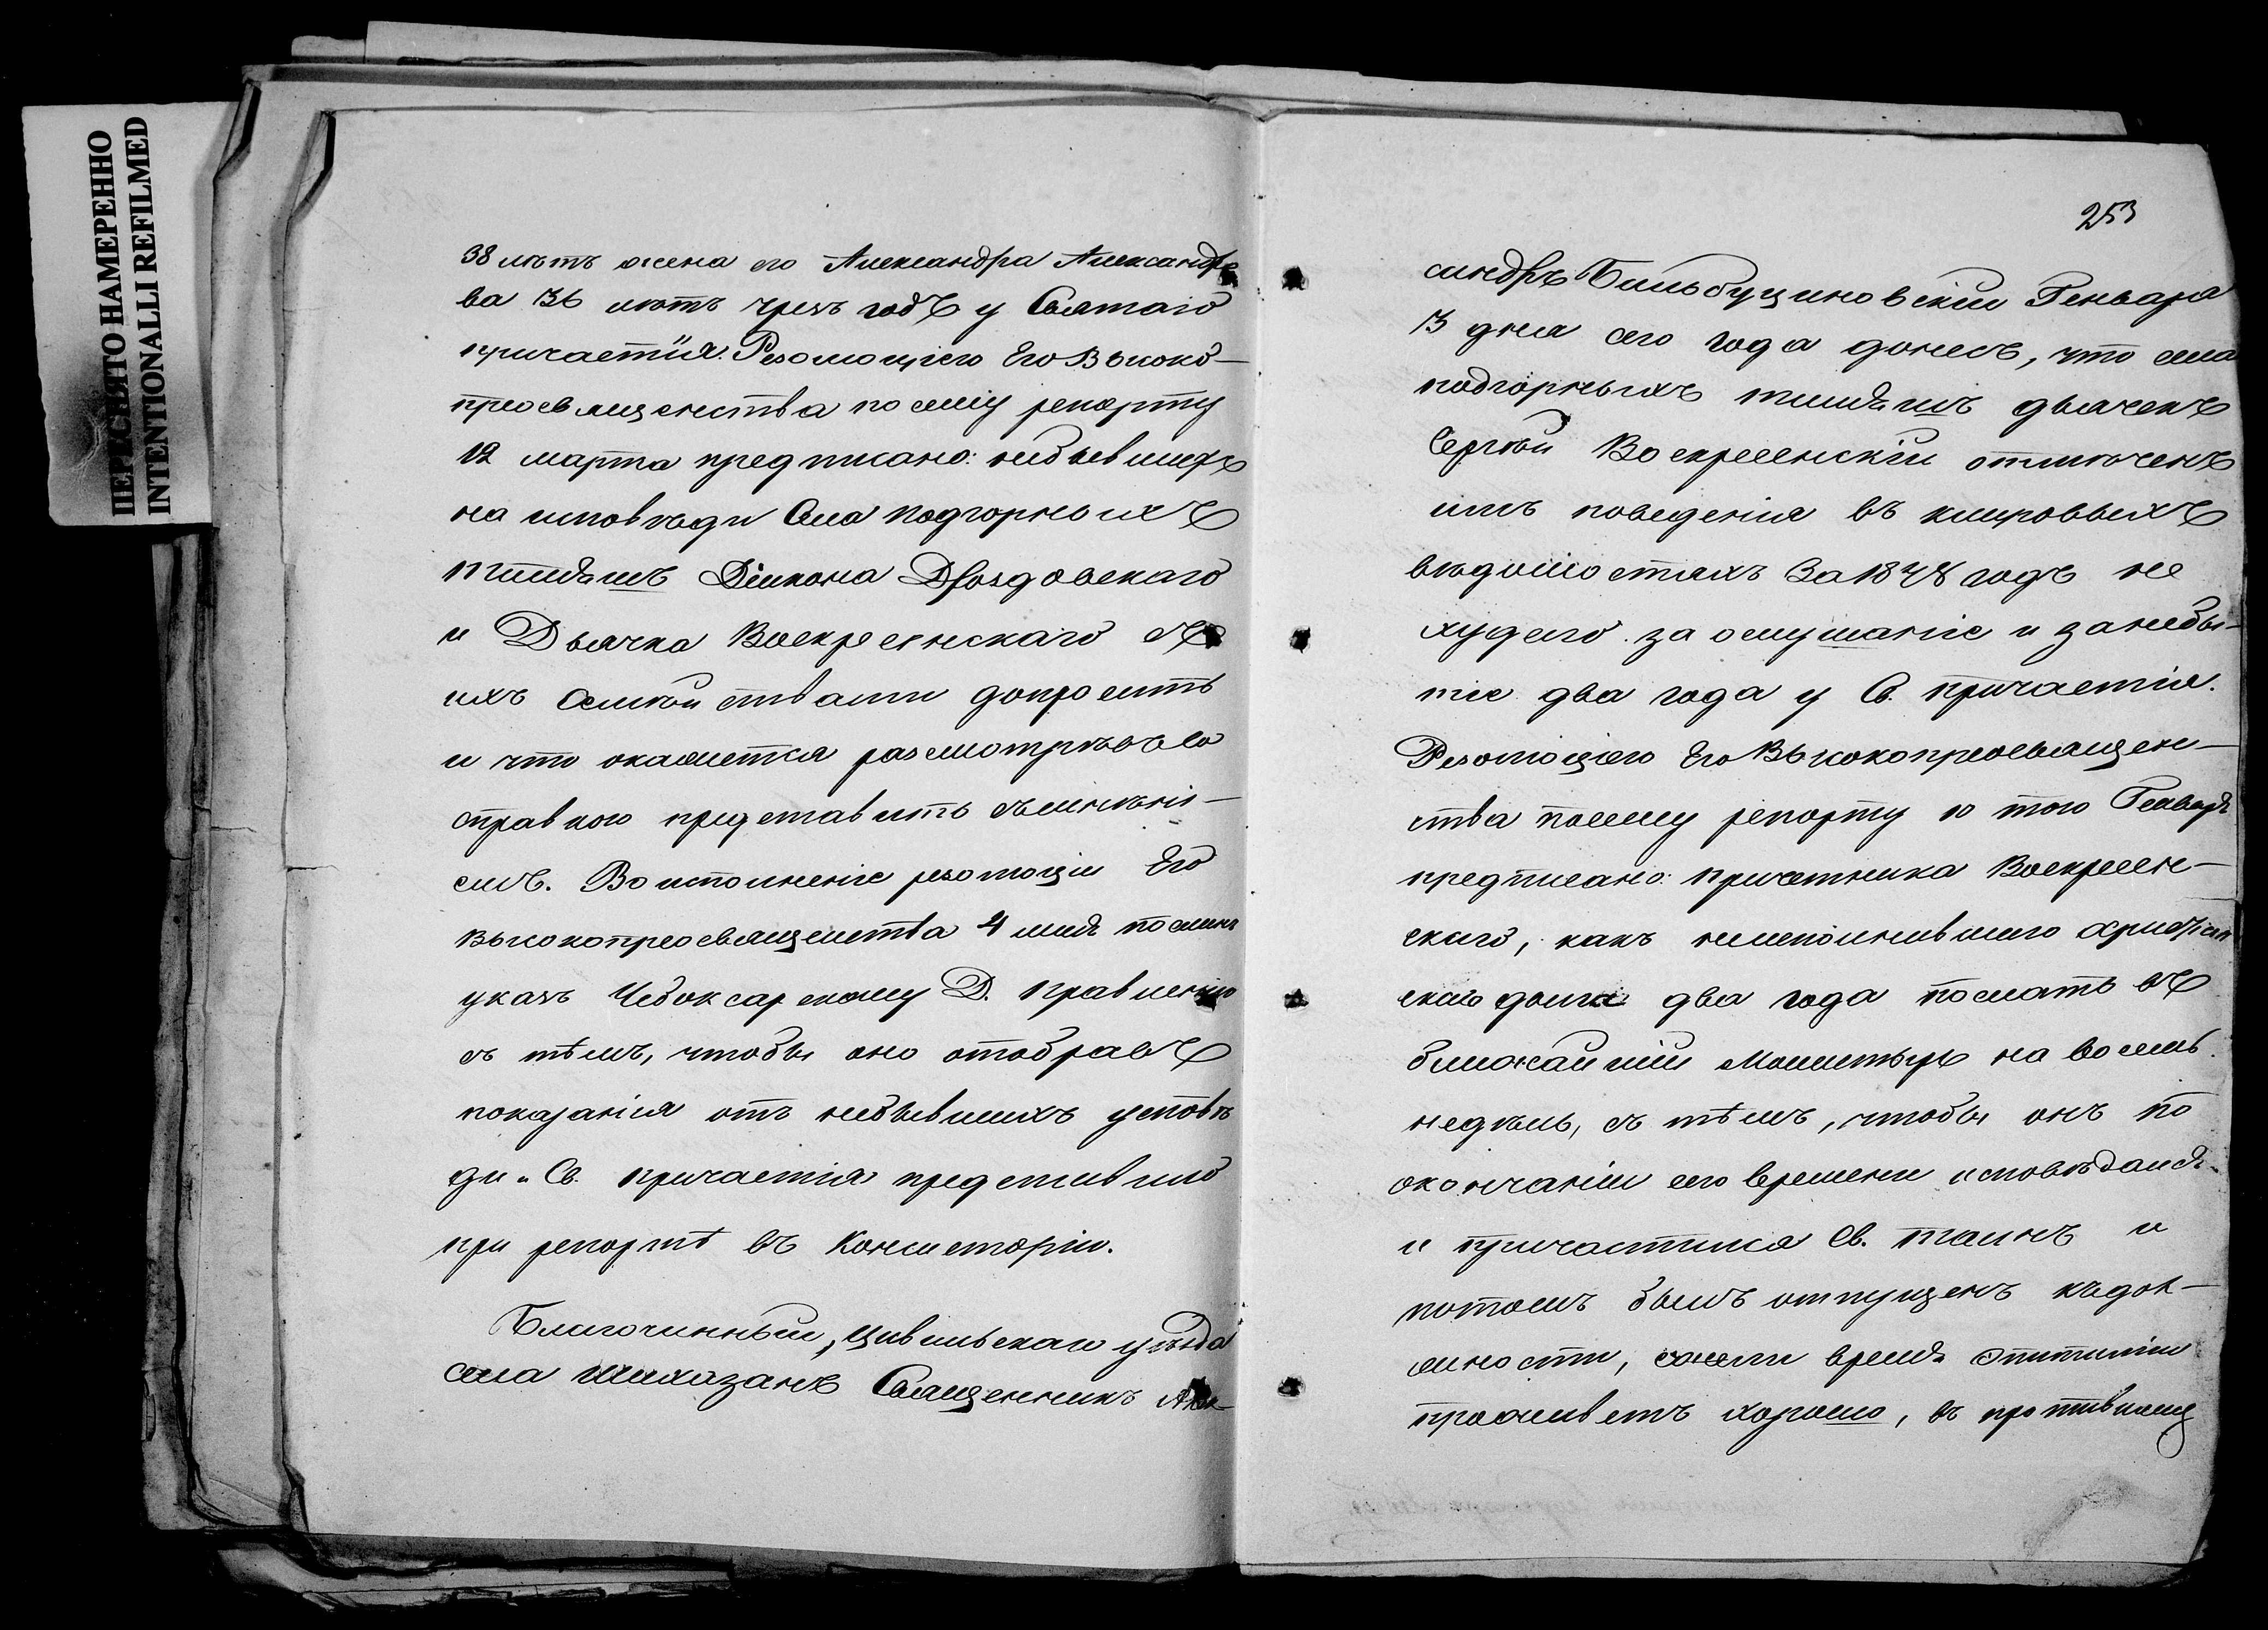 ПЕРЕСНЯТО НАМЕРЕННО
INTENTIONALLI REFILMED
38 лѣтъ жена его Александра Александро
ва 36 лѣтъ чрезъ годъ у Святаго
причастія. Резолюціею Его Высоко-
преосвященства по сему репорту
12 марта предписано: небывшихъ
на исповѣди Села подгорныхъ
тимяшъ Діакона Дроздовскаго
и Дьячка Воскресенскаго съ
ихъ Семействами допросить
и что окажется разсмотрѣвъ со
справкою представить съ мнѣні-
емъ. Во исполненіе резолюціи Его
Высокопреосвященства 4 мая посланъ
указъ Чебоксарскому Д. Правленію
съ тѣмъ, чтобы оно отобравъ
показанія отъ небывшихъ у исповѣ
ди и Св. причастія представило
при репортѣ въ Консисторію.
Благочинный, Цивильскаго уѣзда
села Шихазанъ Священникъ Алек-
253
сандръ Бильбуциновскій Генваря
13 дня сего года донесъ, что села
подгорныхъ тимяшъ дьячекъ
Сергѣй Воскресенскій отмѣченъ
имъ поведенія въ клировыхъ
вѣдомостяхъ за 1848 годъ не
худаго за ослушаніе и за небы-
тіе два года у Св. причастія.
Резолюціею Его Высокопреосвящен-
ства по сему репорту 10 того Генваря
предписано: причетника Воскресен-
скаго, какъ неисполнившаго христіан
скаго долга два года послать въ
ближайшій Монастырь на восемь
недѣль, съ тѣмъ, чтобы онъ по
окончаніи сего времени исповѣдался
и причастился Св. таинъ и
потомъ былъ отпущенъ къ дол-
жности, если время эпитиміи
проживетъ хорошо, въ противномъ